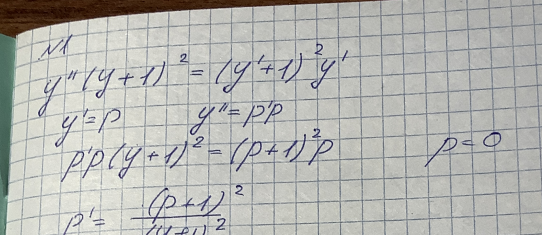 N1
y''(y+1)² = (y'+1)² y'
y' = p y'' = p'p
p'p(y+1)² = (p+1)² p p = 0
p' = (p+1)² / (y+1)²